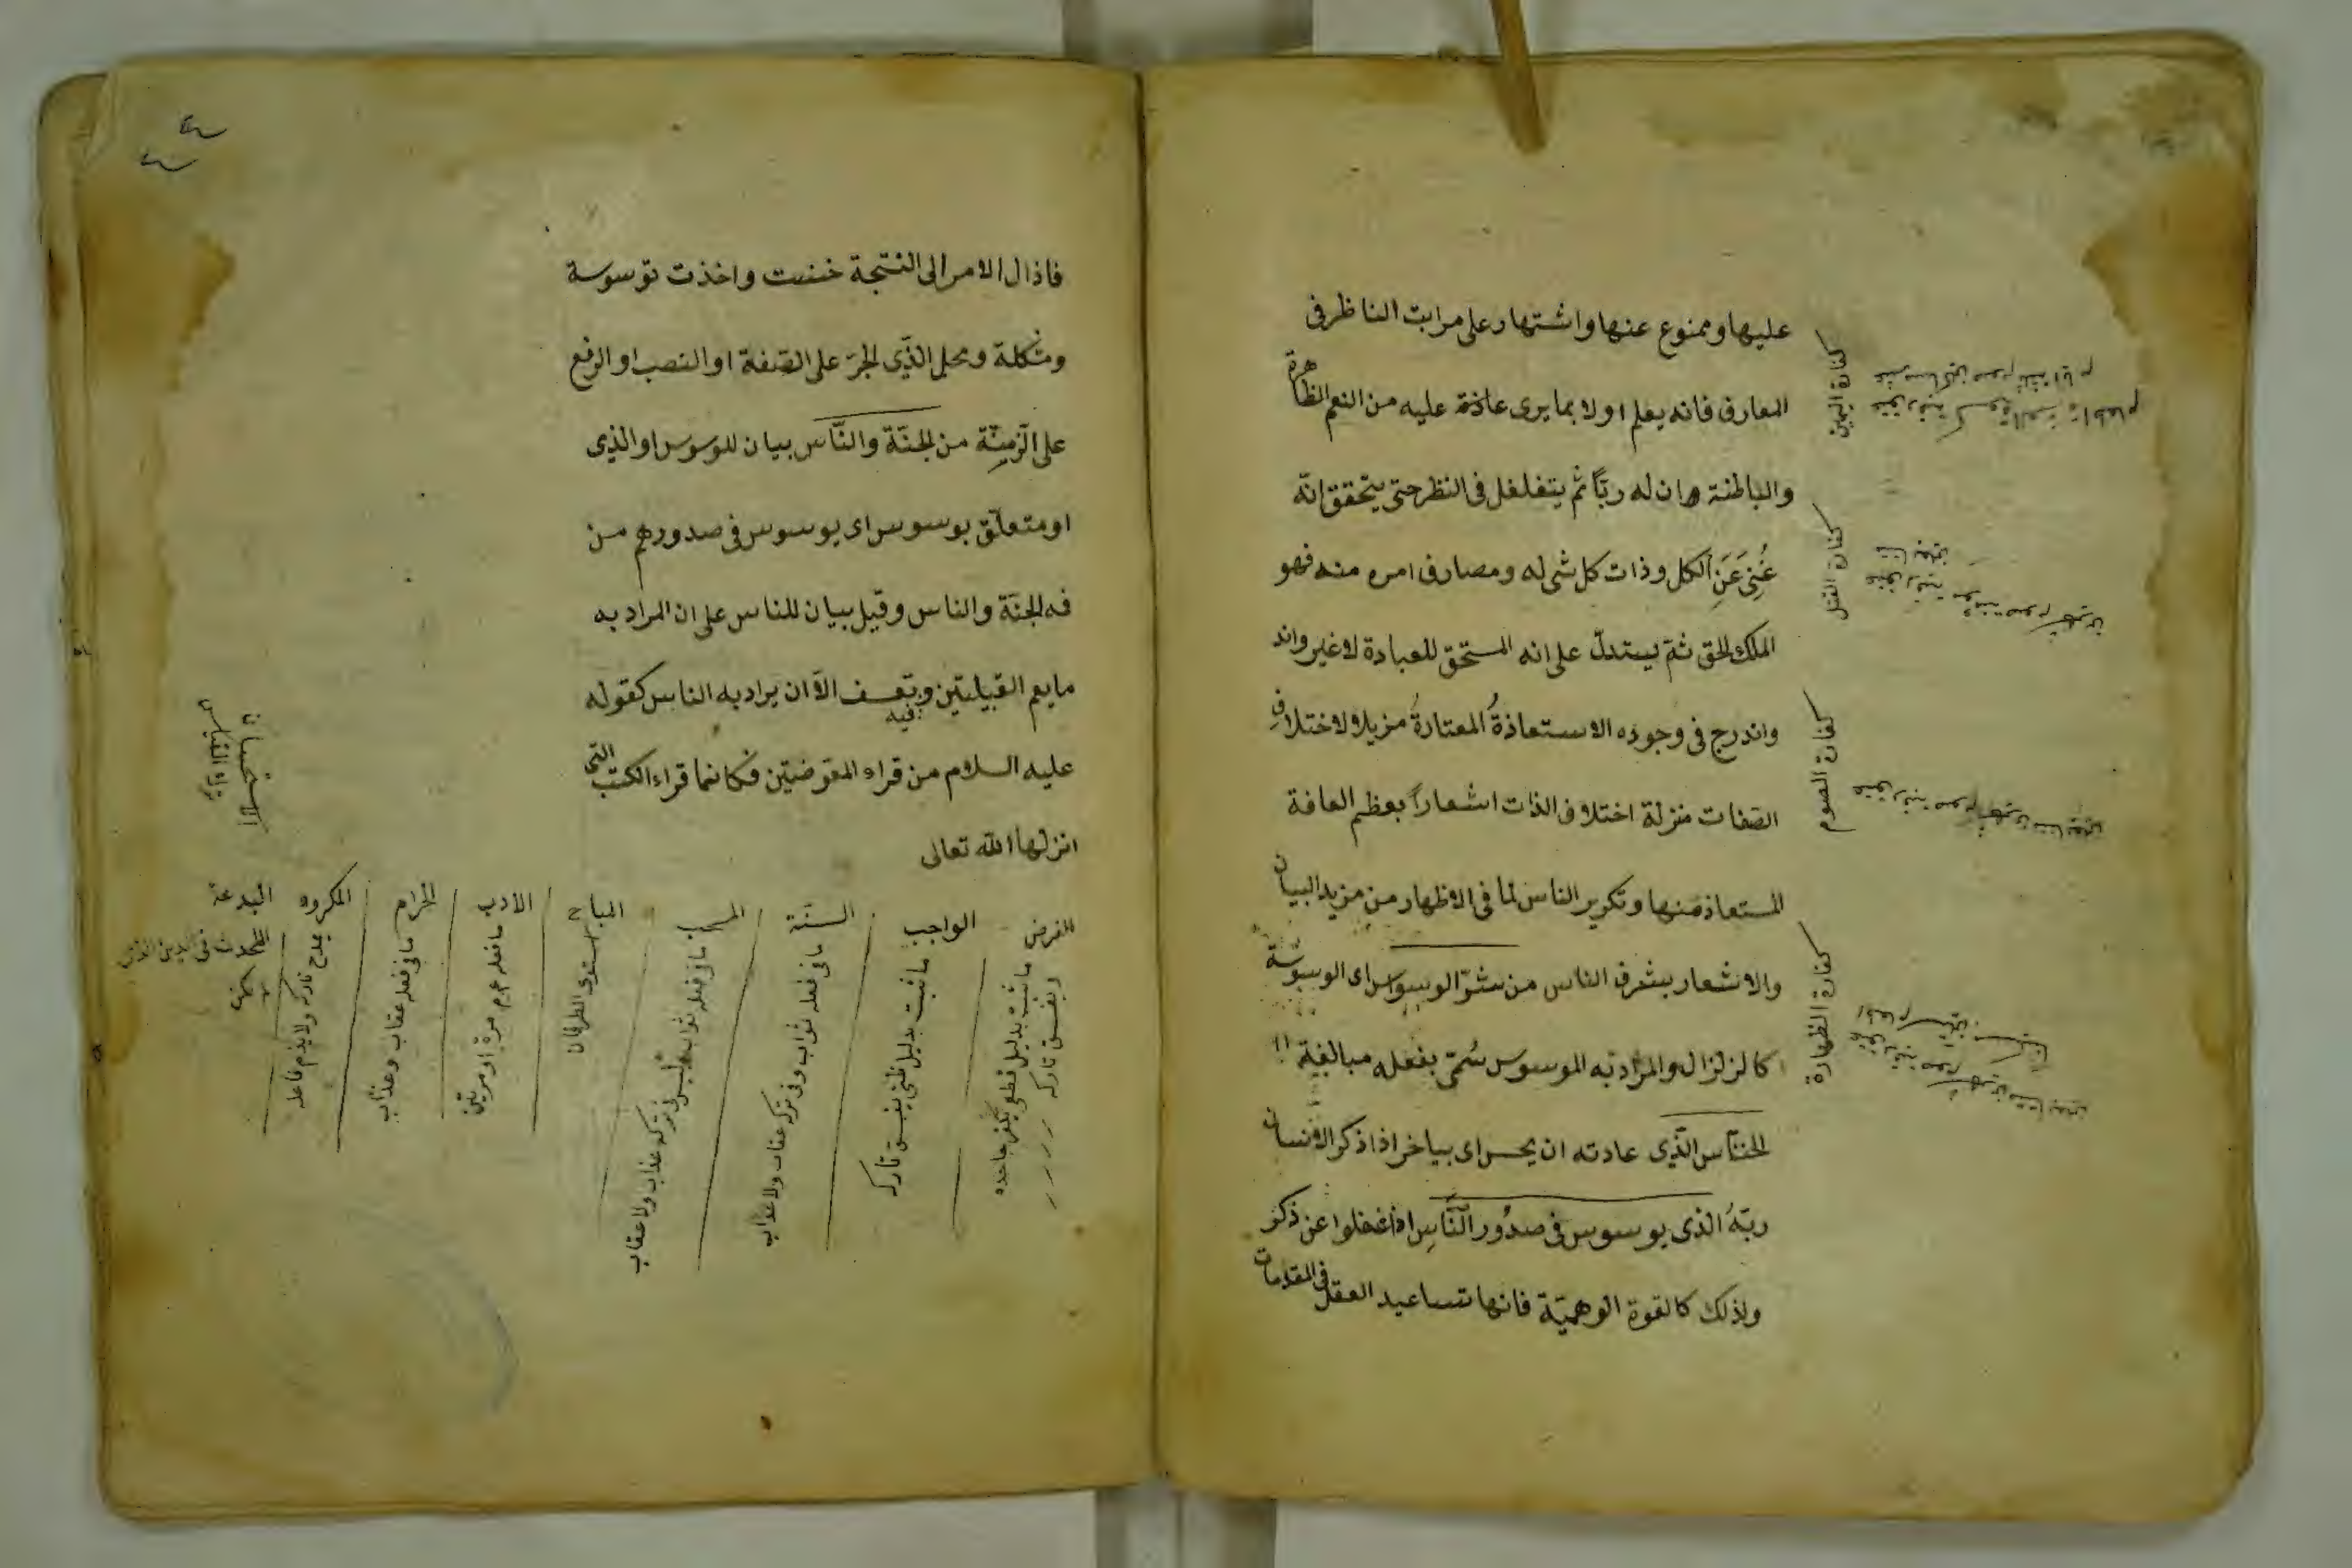 عليها وممنوع عنها واشتهار على مراتب الناظر فى
المعارف فانه يعلم اولا بما يرى عاذة عليه من النعم الظاهرة
والباطنة ان له ربّاً ثم يتغلغل فى النظر حتى يتحقق انّه
غُنِى عَنِ الكل وذات كل شى له ومصارف امره منه فهو
الملك الحق ثم يستدلّ على انه المستحق للعبادة لا غير واند
واندرج فى وجوده الاستعاذةُ المعتادةُ مزيلا لاختلافِ
الصّفات منزلة اختلاف الذات اشعاراً بعظم العافة
المستعاذ منها وتكرير الناس لما فى الاظهار من مزيد البيان
والاشعار بشرف الناس من شرّ الوسواس اى الوسوسة
كالزلزال والمراد به الموسوس سُمّى بفعله مبالغة
الخنّاس الّذى عادته ان يخنس اى يياخر اذا ذكر الانسان
ربّهُ الذى يوسوس فى صدُور النّاسِ اذا غفلوا عن ذكر
ولذلك كالقوة الوهميّة فانها تساعيد العقل فى المقدمات
كفارة اليمين
كفارة القتل
كفارة الصوم
كفارة الظهارة
فاذا ال الامر الى النتيجة خنست واخذت توسوسة
ومشكلة ومحل الّذى الجرّ على الصّفة او النصب او الرفع
على الزمنّة من الجنّة والنّاس بيان للوسوس او الذى
او متعلّق بوسوس اى يوسوس فى صدورهم من
فه الجنّة والناس وقيل بيان للناس على ان المراد به
ما يعم القبيلتين وفيه تعسف الّا ان يراد به الناس كقوله
عليه السلام من قراء المعوّضتين فكانما قراء الكتب التى
انزلها الله تعالى
الفرض
ما ثبت بدليل قطعى يكفر جاحده
ويفسق تاركه
الواجب
ما ثبت بدليل ظنى يفسق تاركه
السنّة
ما فى فعله ثواب وفى تركه عتاب ولا عذاب
ما فى فعله ثواب وليس فى تركه عذاب ولا عقاب
المباح
استوى الطرفان
الأدب
ما فعله عم مرّة او مرتين
الحرام
ما فى فعله عقاب وعذاب
المكروه
يمدح تاركه ولا يذم فاعله
البدعة
المحدث فى الدين
الاستحسان
ترك القياس